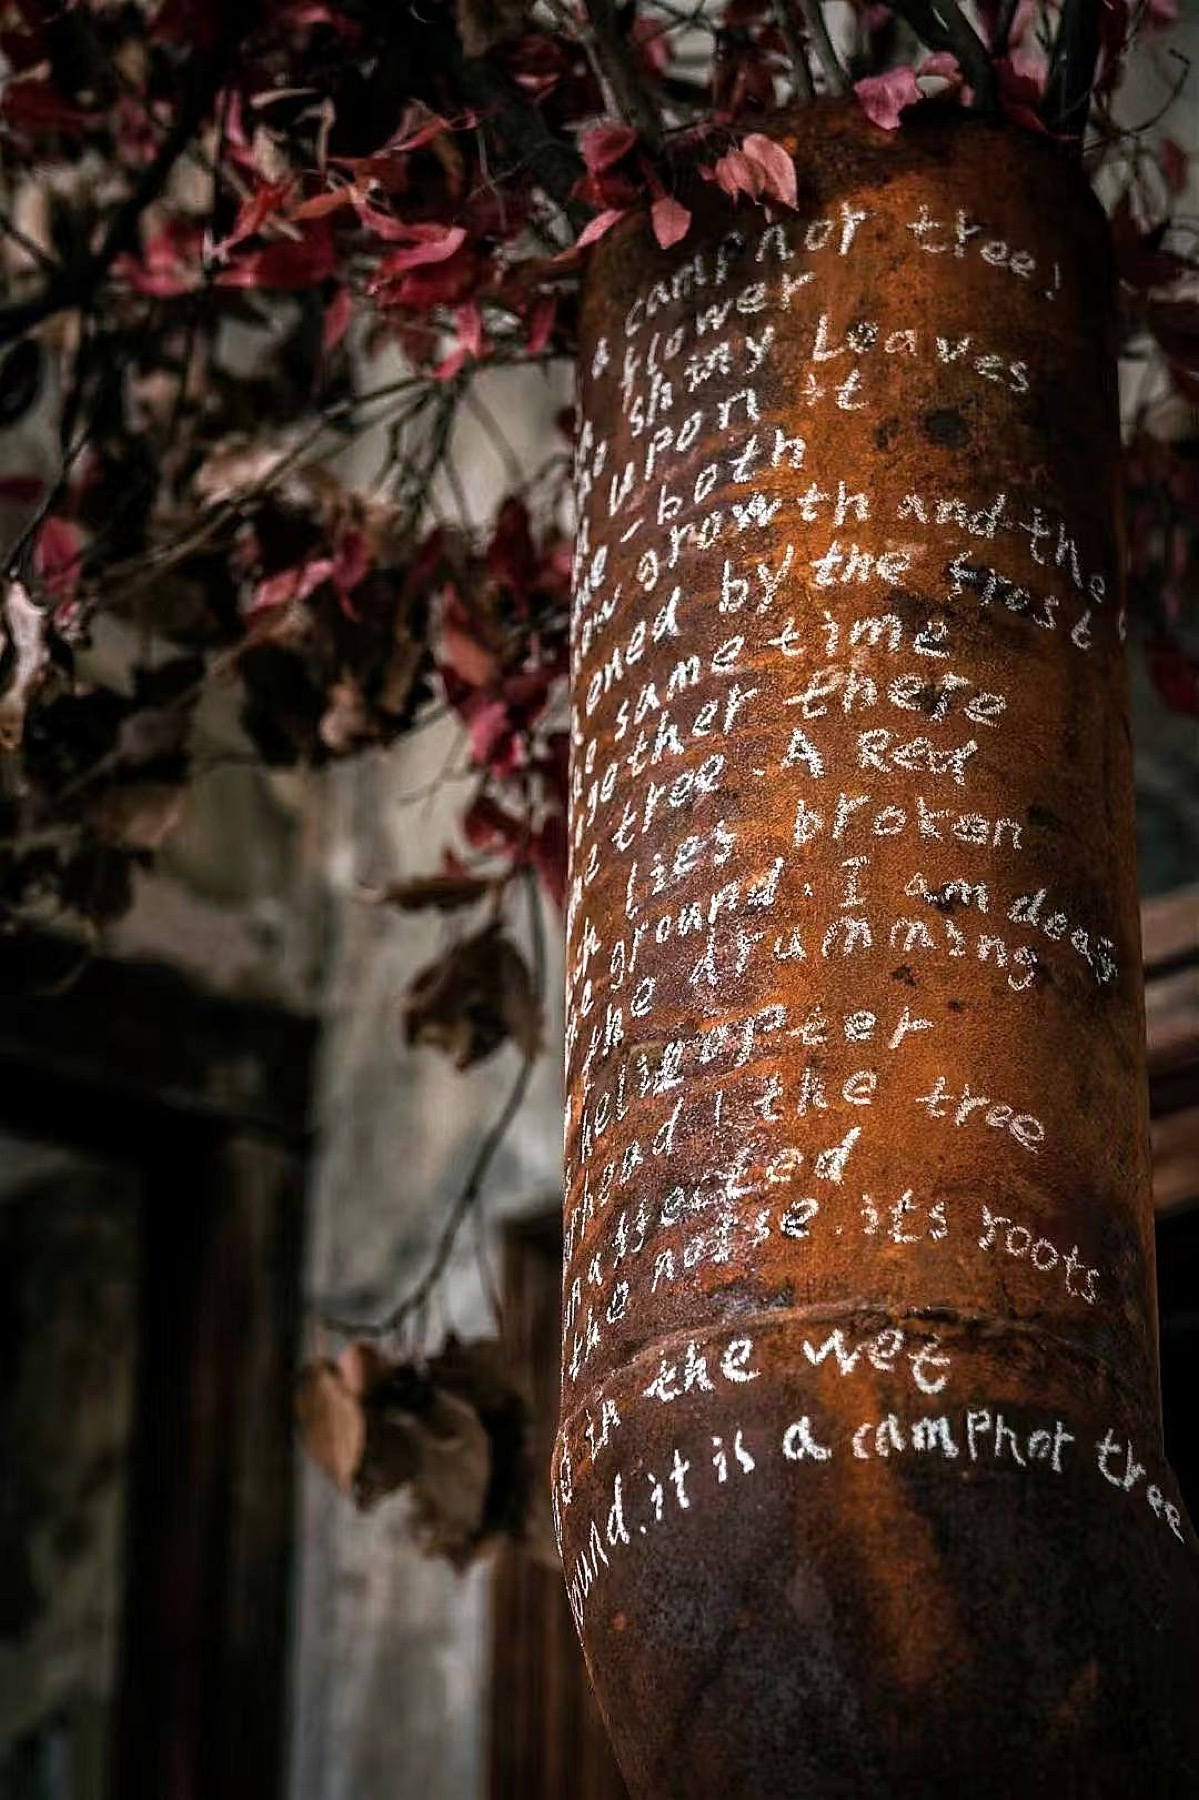 camphor tree!
a flower
shiny Leaves
upon it
- both
growth and the
ened by the frost
same time
gether there
tree. A Red
Lies broken
ground. I am deaf
the drumming
helicopter
rhead! the tree
unaffected
the noise. its roots
in the wet
ound. it is a camphor tree